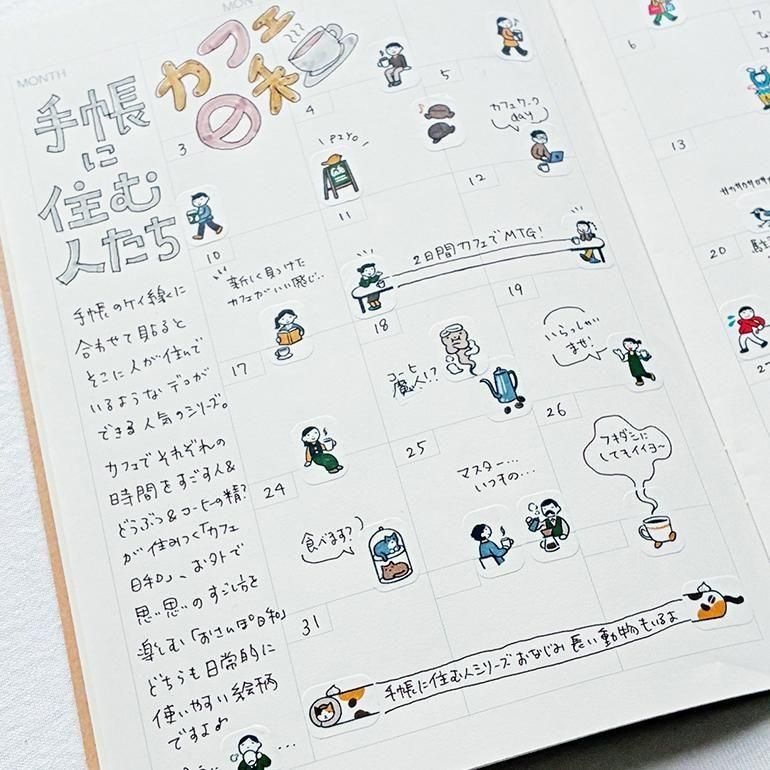 MONTH
MON
手帳
に
住む
人たち
カフェ
日和
手帳のケイ線に
合わせて貼ると
そこに人が住んで
いるようなデコが
できる人気のシリーズ。
カフェでそれぞれの
時間をすごす人&
どうぶつ&コーヒーの精?
が住みつく「カフェ
日和」、お外で
思い思いのすごし方を
楽しむ「おさんぽ日和」
どちらも日常的に
使いやすい絵柄
ですよ♪
3
4
5
6
7
PIYO
カフェワーク
day
10
11
12
13
新しく見つけた
カフェがいい感じ…
2日間カフェでMTG!
17
18
19
20
コーヒー
魔人!?
いらっしゃい
ませ!
24
25
26
27
食べます?
マスター…
いつもの…
フキダシに
してもイイヨ〜
31
手帳に住む人シリーズおなじみ長い動物もいるよ